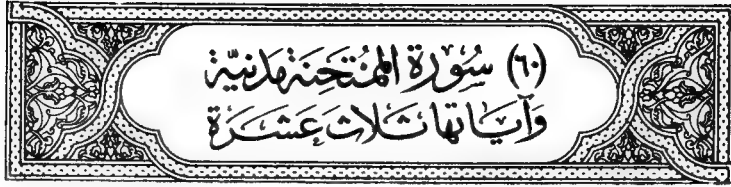 (٦٠) سُورَة المُمْتَحِنَة مَدَنيَّة
وَآيَاتهَا ثَلَاثَ عَشَرَة